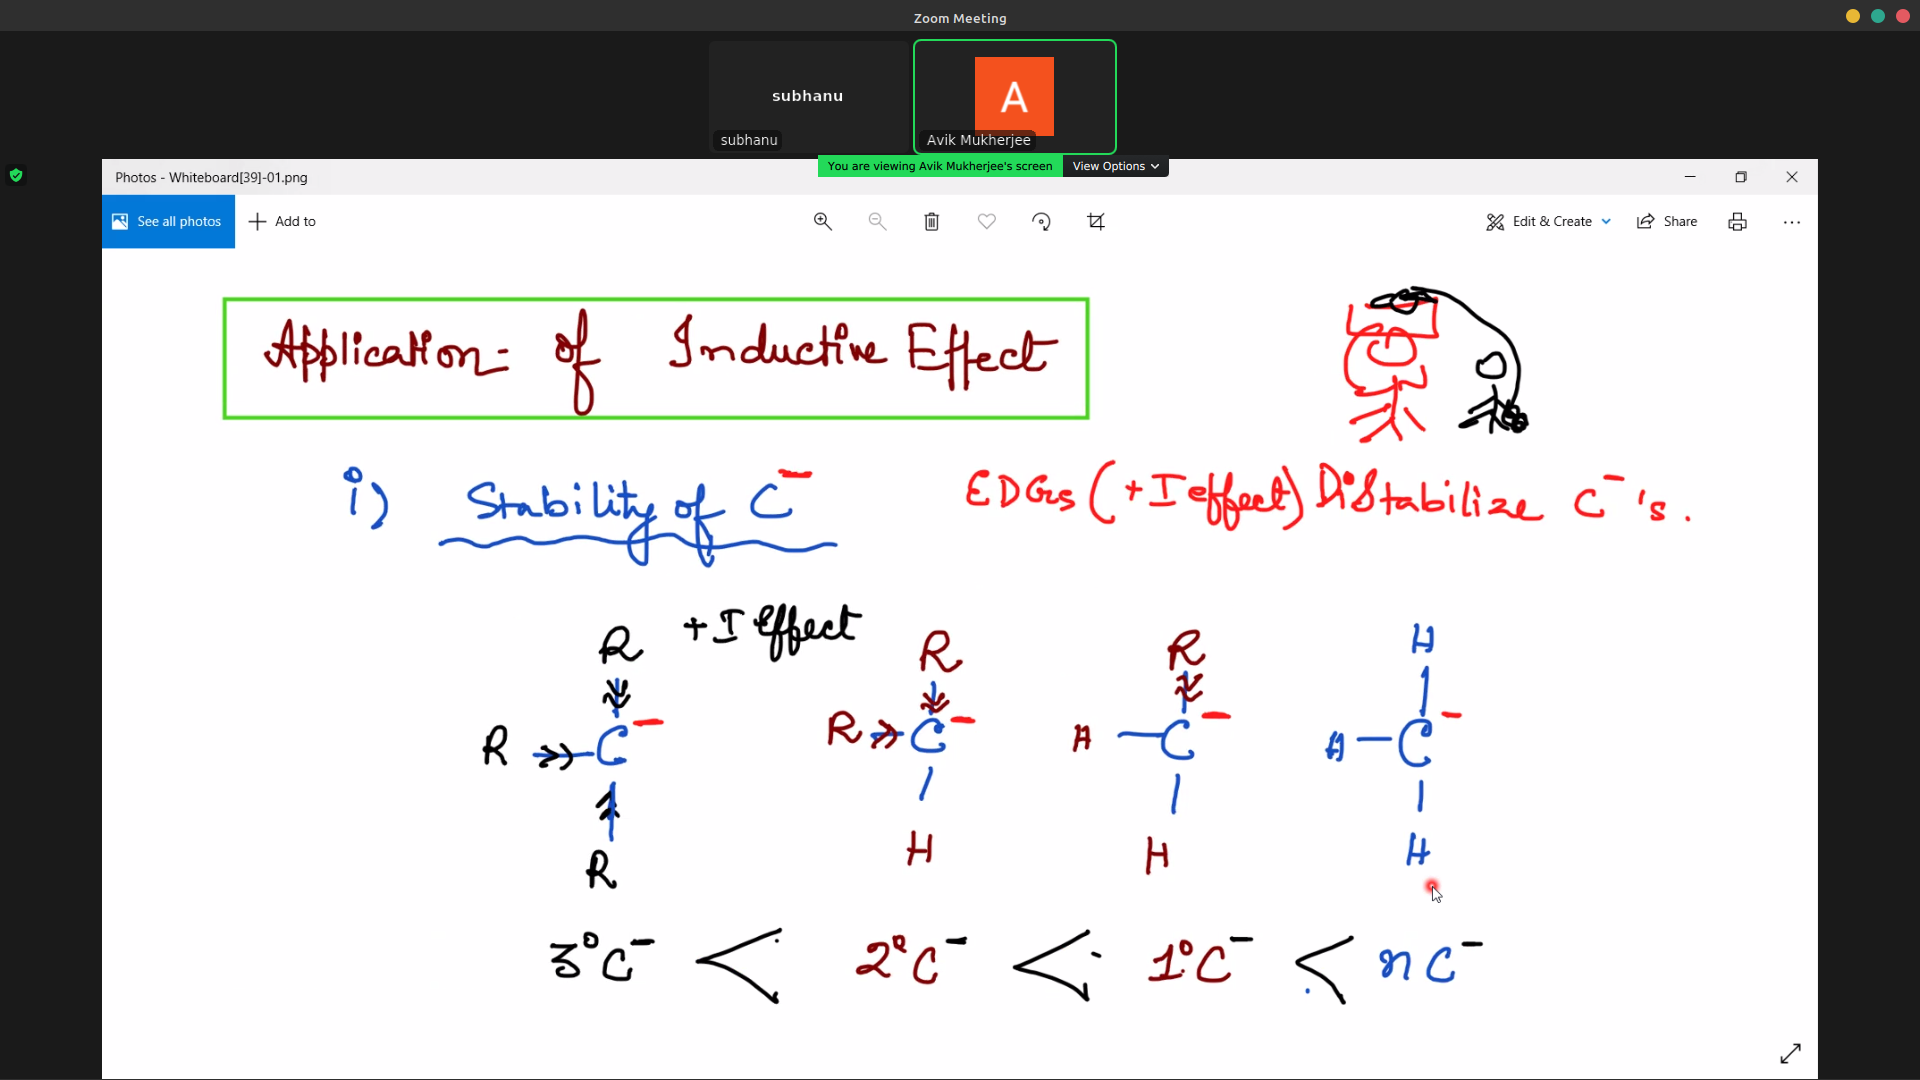 Zoom Meeting
subhanu
A
subhanu
Avik Mukherjee
You are viewing Avik Mukherjee's screen View Options
Photos - Whiteboard[39]-01.png
See all photos Add to Edit & Create Share
Application of Inductive Effect
i) Stability of C⁻ EDGs (+I effect) Distabilize C⁻'s.
+I Effect
R R R H
R C⁻ R C⁻ H C⁻ H C⁻
R H H H
3°C⁻ < 2°C⁻ < 1°C⁻ < nC⁻